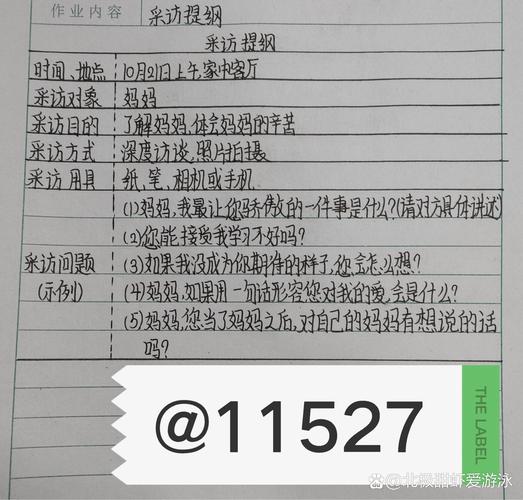 作业内容 采访提纲
采访提纲
时间、地点 10月21日上午,家中客厅
采访对象 妈妈
采访目的 了解妈妈,体会妈妈的辛苦
采访方式 深度访谈,照片拍摄
采访用具 纸、笔、相机或手机
(1)妈妈,我最让您骄傲的一件事是什么?(请对方具体讲述)
(2)您能接受我学习不好吗?
采访问题 (3)如果我没成为你期待的样子,您会怎么想?
(示例) (4)妈妈,如果用一句话形容您对我的爱,会是什么?
(5)妈妈,您当了妈妈之后,对自己的妈妈有想说的话
吗?
@11527
THE LABEL
@北极甜虾爱游泳